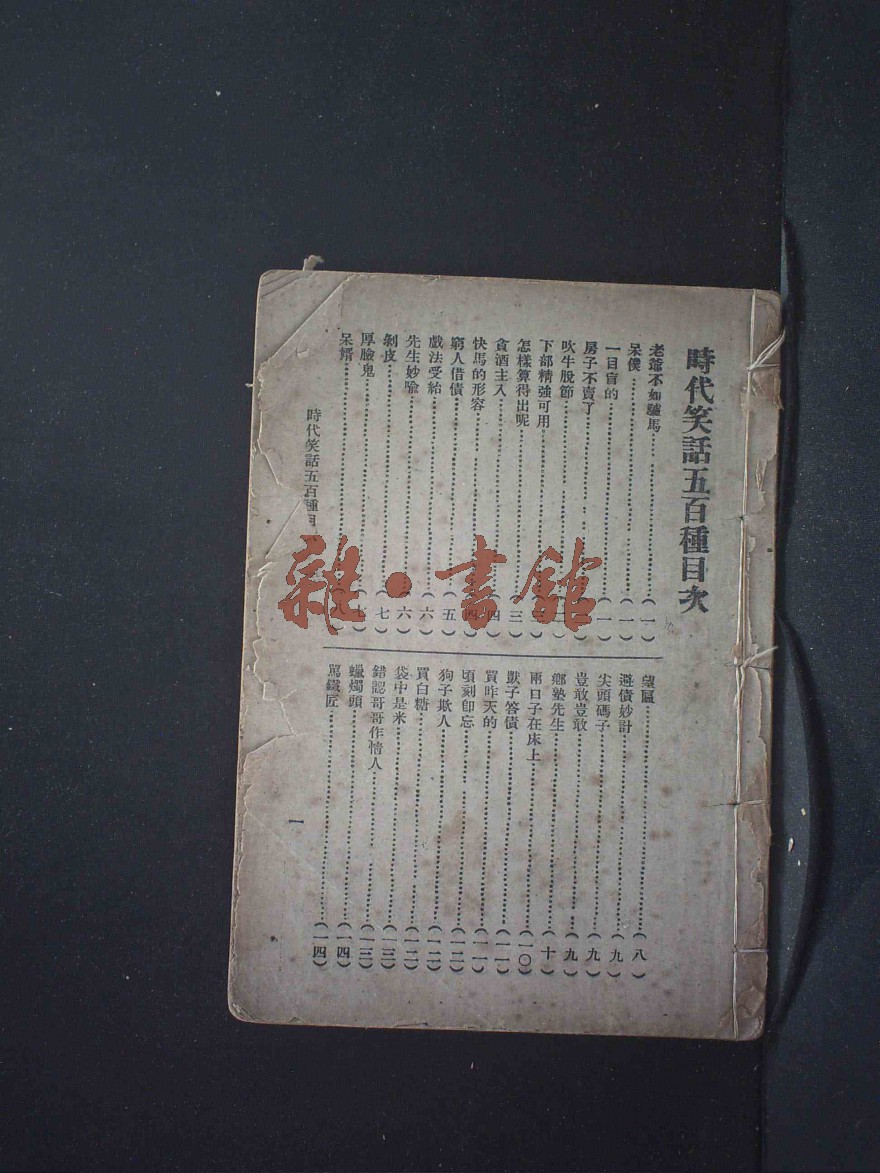 時代笑話五百種目次
老爺不如驢馬……(一)
呆僕……(一)
一目盲的……(一)
房子不賣了……
吹牛脫節……(二)
下部精強可用……
怎樣算得出呢……(三)
貪酒主人……(四)
快馬的形容……(四)
窮人借債……(五)
戲法受給……(六)
先生妙喻……(六)
剝皮……(七)
厚臉鬼……(七)
呆婿……
望匾……(八)
避債妙計……(九)
尖頭碼子……(九)
豈敢豈敢……(九)
鄉塾先生……(十)
兩日子在床上……(一〇)
獃子答債……(一一)
買昨天的……(一一)
頃刻即忘……(一二)
狗子欺人……(一二)
買白糖……(一二)
袋中是米……(一三)
錯認哥哥作情人……(一三)
蠟燭頭……(一四)
罵鐵匠……(一四)
時代笑話五百種目
一
雜·書館